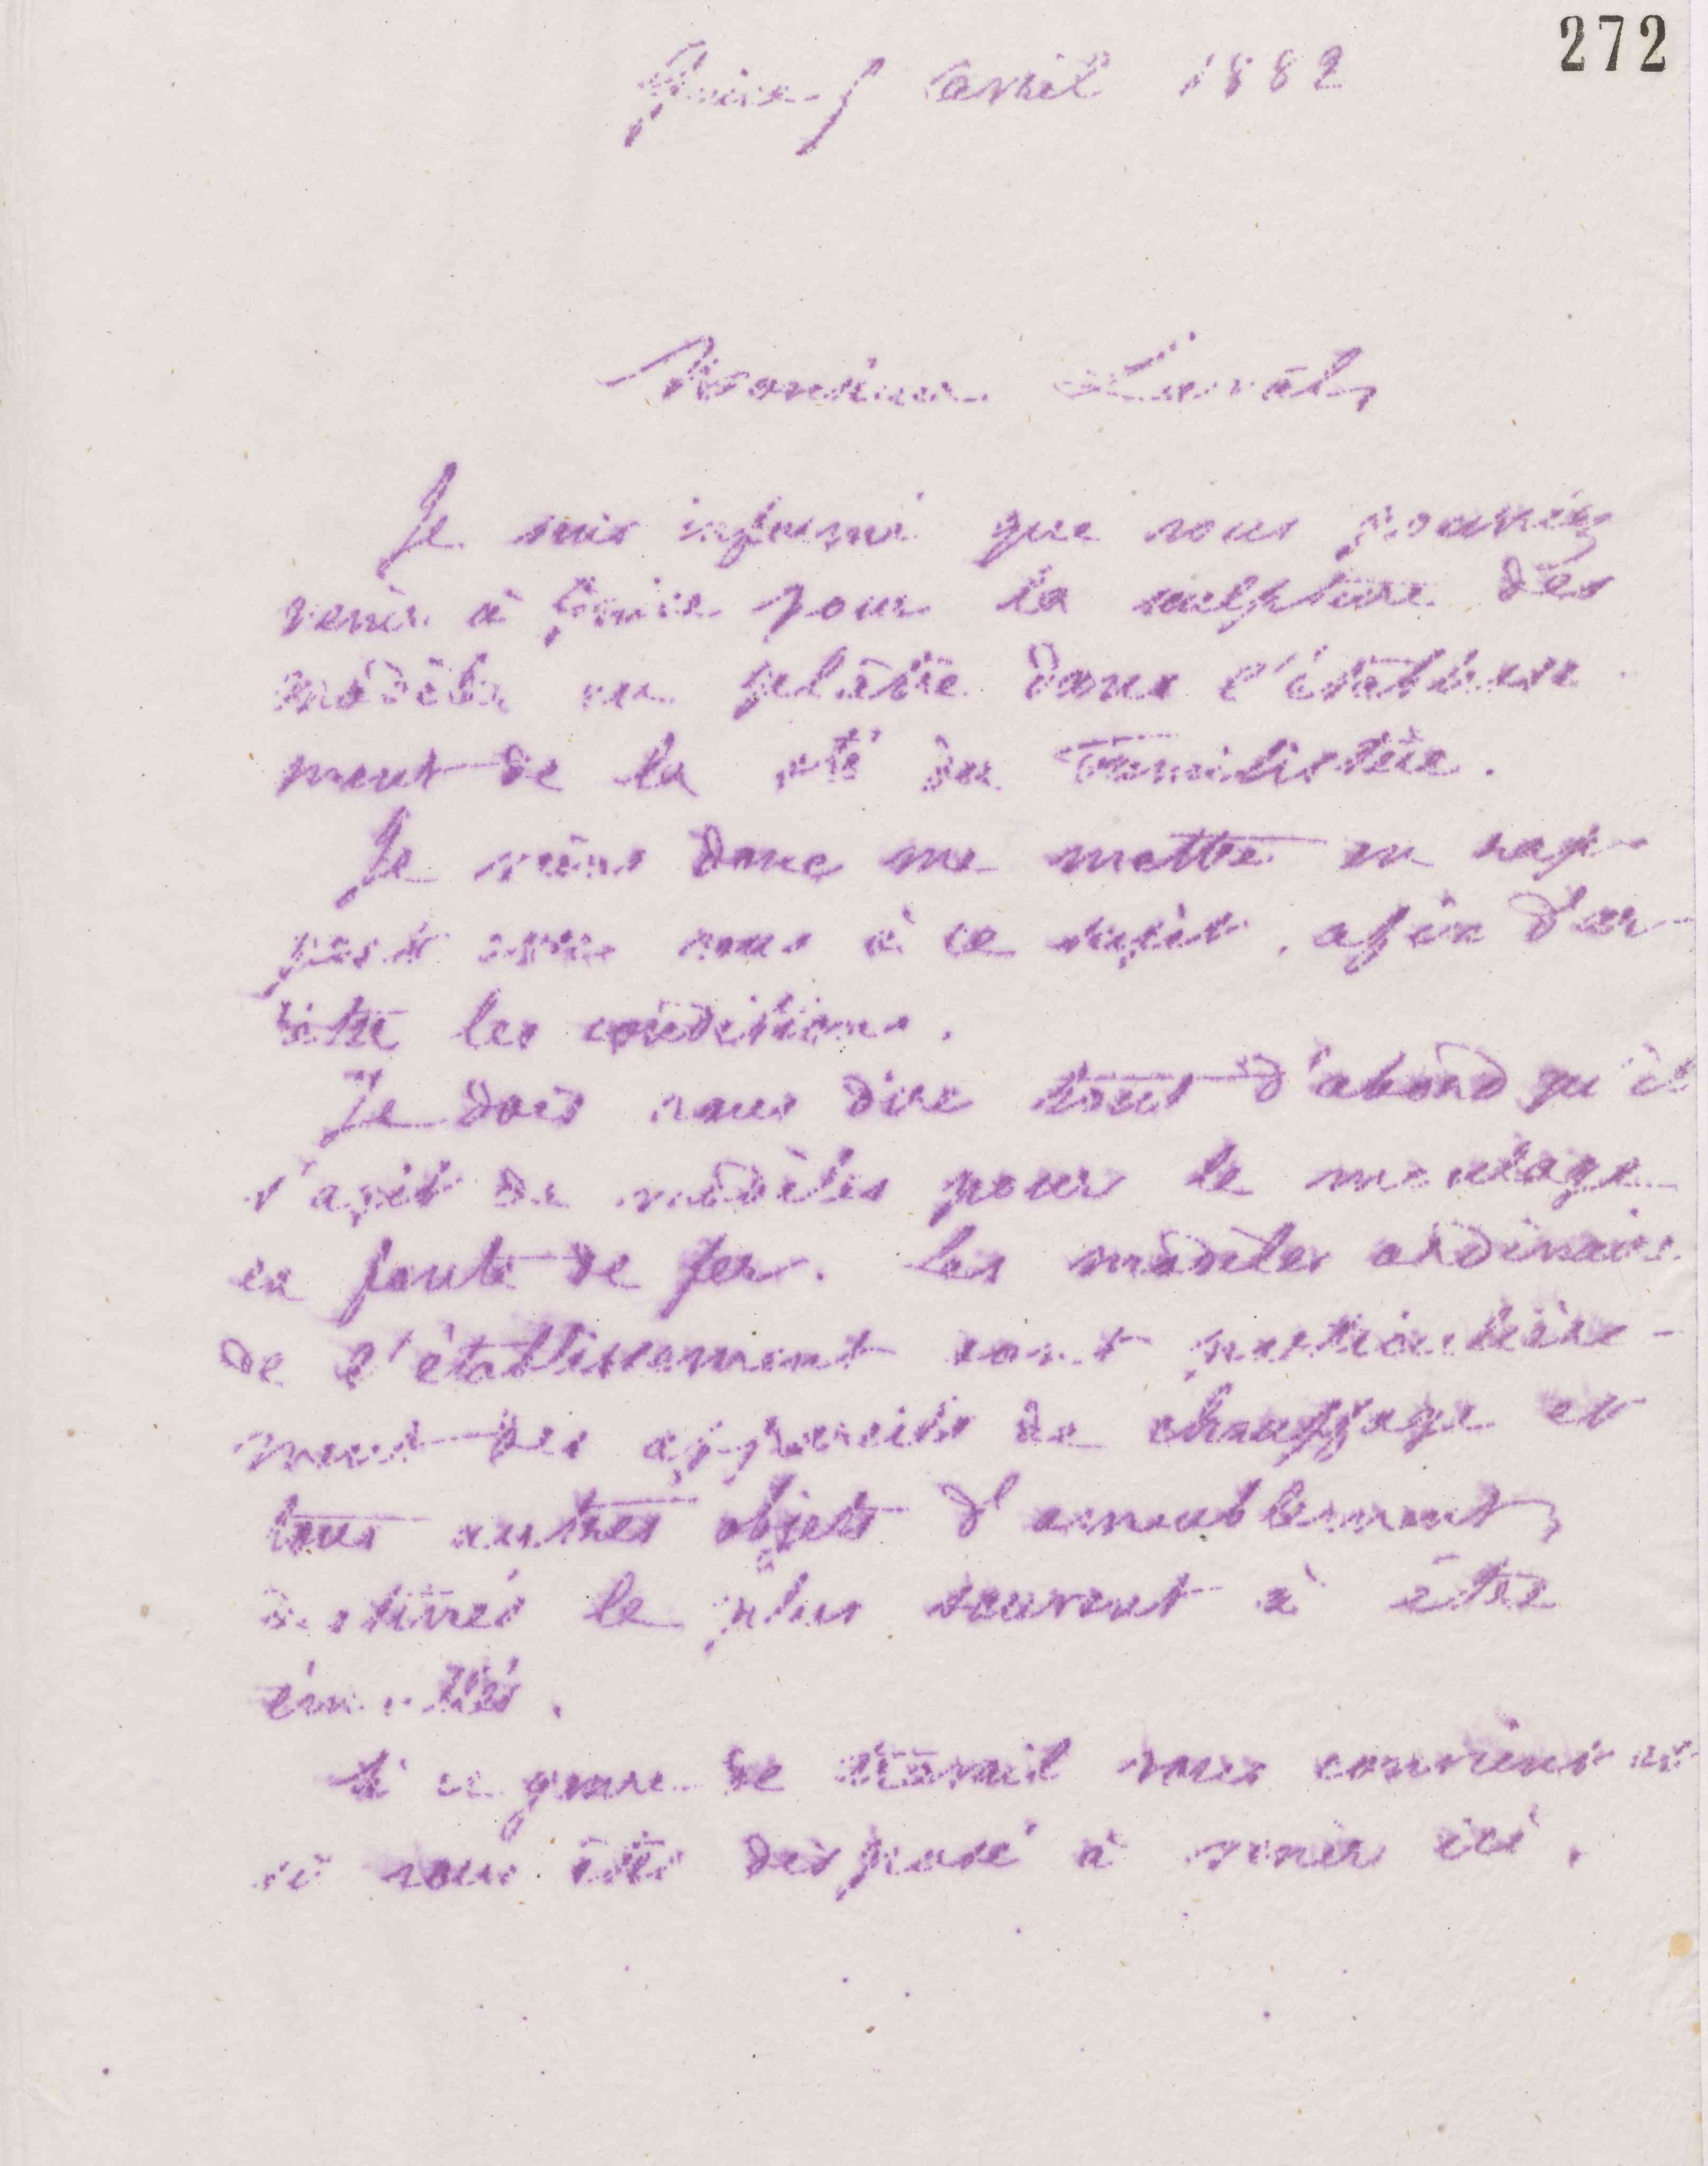 272
Guise 5 avril 1882
Monsieur
Je suis informé que vous pourriez
venir à Guise pour la sculpture des
modèles en plâtre dans l'établisse
ment de la sté du Familistère.
Je viens donc me mettre en rap-
port avec vous à ce sujet, afin d'ar-
rêter les conditions.
Je dois vous dire tout d'abord qu'il
s'agit de modèles pour le moulage
en fonte de fer. Les modèles ordinaires
de l'établissement sont particulière-
ment des appareils de chauffage et
tous autres objets d'ameublement,
destinés le plus souvent à être
émaillés.
Si ce genre de travail vous convient et
si vous êtes disposé à venir ici,